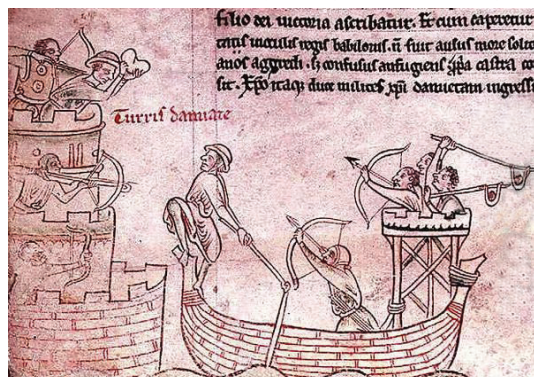 filio dei uictoria ascribatur. Et cum caperetur
regis babilonis. ñ fuit ausus more solito
anos aggredi. s; confusus aufugiens ꝓpa castra co
sit. Xp̄o itaq; duce milites xp̄i damietam ingressi
Turris damiate